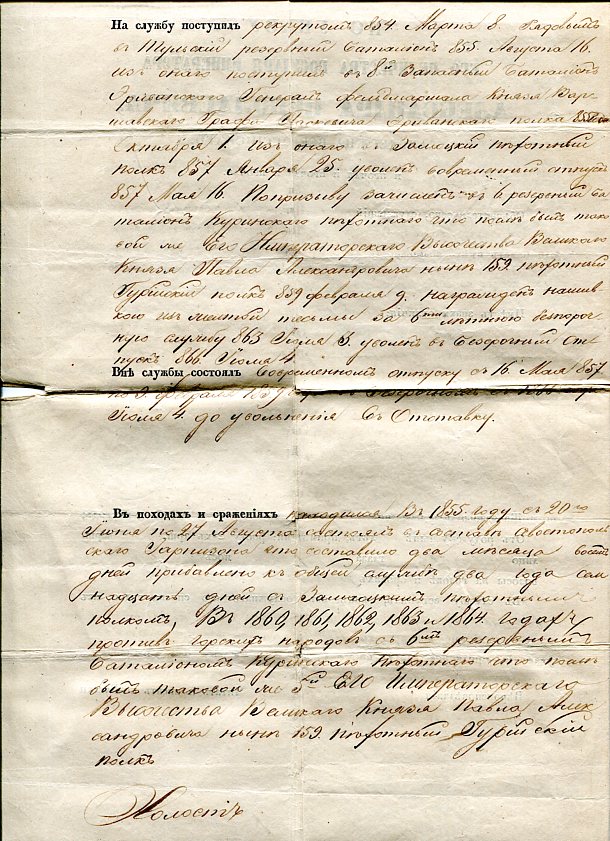 На службу поступилъ рекрутомъ 854. Марта 8. Рядовымъ
въ Тульскій резервный баталіонъ 855. Августа 16.
изъ онаго поступилъ въ 8й Запасный баталіонъ
Эриванскаго Генералъ фельдмаршала Князя Вар-
шавскаго Графа Эриванскаго полка
Октября 1. изъ онаго въ Замосцкій пѣхотный
полкъ 857 Января 25. уволенъ во временный отпускъ
857 Мая 16. По призыву зачисленъ въ 6 резервный ба-
таліонъ Куринскаго пѣхотнаго что послѣ былъ тако-
вой же Его Императорскаго Высочества Великаго
Князя Павла Александровича нынѣ 159. пѣхотный
Гурійскій полкъ 859 февраля 9. награжденъ нашив-
кою изъ желтой тесьмы за 6ти лѣтнюю безпороч-
ную службу 863 Іюля 3. уволенъ въ безсрочный от-
пускъ 866 Іюля 4.
Внѣ службы состоялъ во временномъ отпуску съ 16. Мая 857
по 9. февраля 1859
Іюля 4. до увольненія въ Отставку.
Въ походахъ и сраженіяхъ находился Въ 1855 году съ 20го
Іюня по 27 Августа состоялъ въ составѣ Севастополь-
скаго Гарнизона что составило два мѣсяца восемь
дней прибавлено къ общей службѣ два года сем-
надцать дней съ Замосцкимъ пѣхотнымъ
полкомъ, Въ 1860, 1861, 1862, 1863 и 1864 годахъ
противъ горскихъ народовъ съ 6мъ резервнымъ
баталіономъ Куринскаго пѣхотнаго что послѣ
былъ таковой же ЕГО Императорскаго
Высочества Великаго Князя Павла Алек-
сандровича нынѣ 159. пѣхотный Гурійскій
полкъ
Холостъ